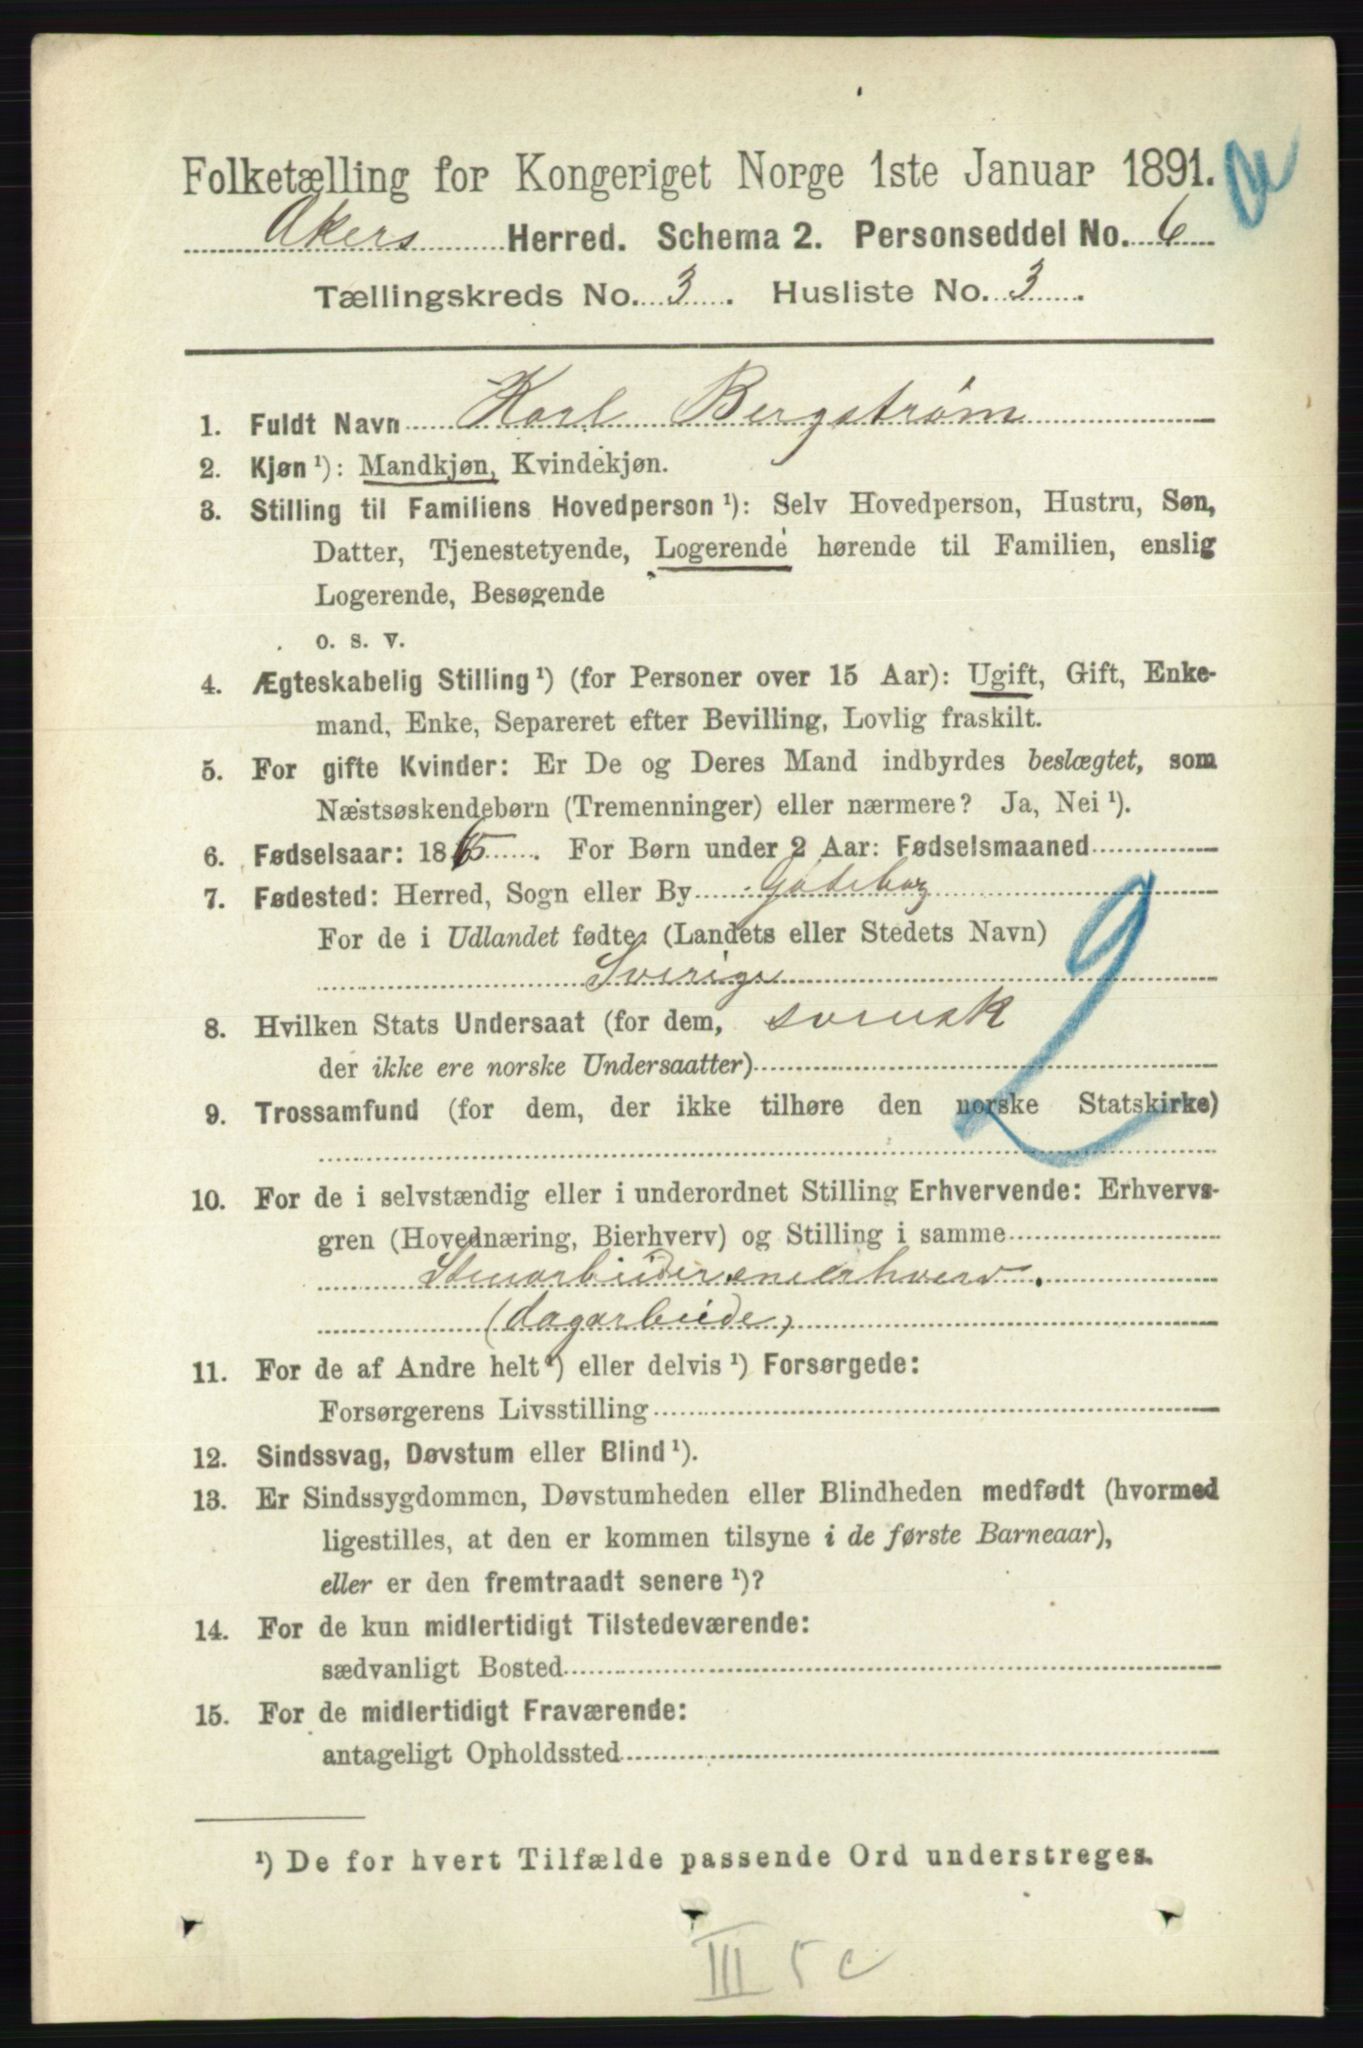 Folketælling for Kongeriget Norge 1ste Januar 1891.
Akers Herred. Schema 2. Personseddel No. 6
Tællingskreds No. 3. Husliste No. 3.
1. Fuldt Navn Karl Bergstrøm
2. Kjøn ¹): Mandkjøn, Kvindekjøn.
3. Stilling til Familiens Hovedperson ¹): Selv Hovedperson, Hustru, Søn,
Datter, Tjenestetyende, Logerende hørende til Familien, enslig
Logerende, Besøgende
o. s. v.
4. Ægteskabelig Stilling ¹) (for Personer over 15 Aar): Ugift, Gift, Enke-
mand, Enke, Separeret efter Bevilling, Lovlig fraskilt.
5. For gifte Kvinder: Er De og Deres Mand indbyrdes beslægtet, som
Næstsøskendebørn (Tremenninger) eller nærmere? Ja, Nei ¹).
6. Fødselsaar: 1865. For Børn under 2 Aar: Fødselsmaaned
7. Fødested: Herred, Sogn eller By Gøteborg
For de i Udlandet fødte: (Landets eller Stedets Navn)
Sverige
8. Hvilken Stats Undersaat (for dem, svensk
der ikke ere norske Undersaatter)
9. Trossamfund (for dem, der ikke tilhøre den norske Statskirke)
10. For de i selvstændig eller i underordnet Stilling Erhvervende: Erhvervs-
gren (Hovednæring, Bierhverv) og Stilling i samme
Stenarbeider eneerhverv.
(dagarbeide)
11. For de af Andre helt ¹) eller delvis ¹) Forsørgede:
Forsørgerens Livsstilling
12. Sindssvag, Døvstum eller Blind ¹).
13. Er Sindssygdommen, Døvstumheden eller Blindheden medfødt (hvormed
ligestilles, at den er kommen tilsyne i de første Barneaar),
eller er den fremtraadt senere ¹)?
14. For de kun midlertidigt Tilstedeværende:
sædvanligt Bosted
15. For de midlertidigt Fraværende:
antageligt Opholdssted
¹) De for hvert Tilfælde passende Ord understreges.
III 5 c